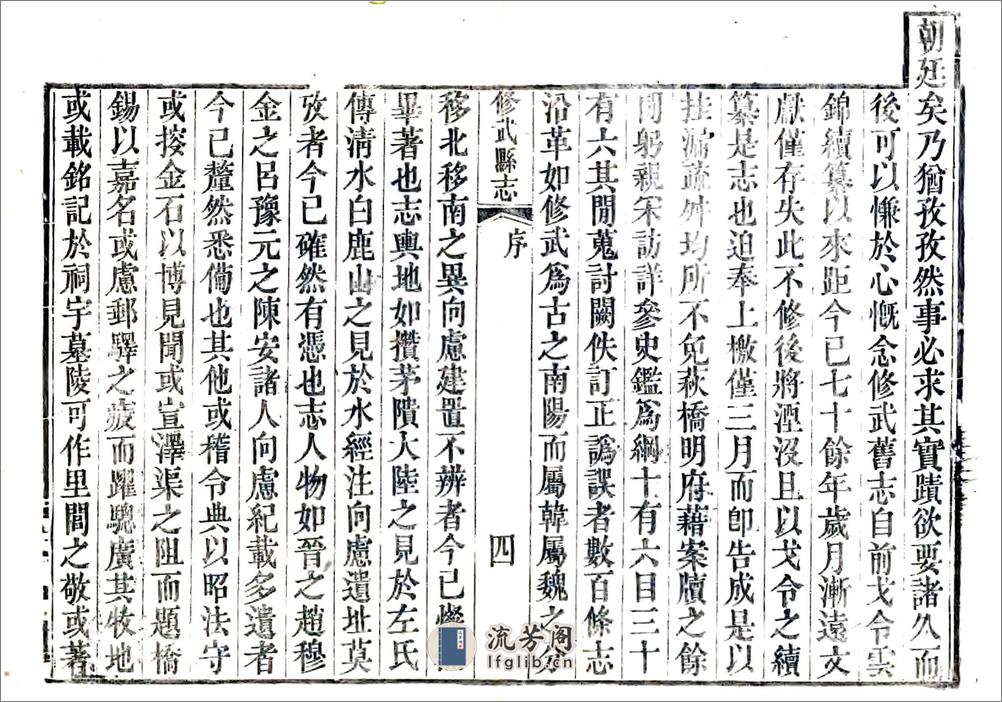 朝廷矣乃猶孜孜然事必求其實蹟欲要諸久而
後可以慊於心慨念修武舊志自前戈令雲
錦續纂以來距今已七十餘年歲月漸遠文
獻僅存失此不修後將湮沒且以戈令之續
纂是志也迫奉上檄僅三月而卽告成是以
挂漏疏舛均所不免萩橋明府藉案牘之餘
閒躬親采訪詳參史鑑爲綱十有六目三十
有六其閒蒐討闕佚訂正譌誤者數百條志
沿革如修武爲古之南陽而屬韓屬魏之
修武縣志 序 四
移北移南之異向慮建置不辨者今已燦
畢著也志輿地如攢茅隤大陸之見於左氏
傳淸水白鹿山之見於水經注向慮遺址莫
攷者今已確然有憑也志人物如晉之趙穆
金之呂豫元之陳安諸人向慮紀載多遺者
今已釐然悉僃也其他或稽令典以昭法守
或搜金石以博見聞或宣澤渠之阻而題橋
錫以嘉名或慮郵驛之疲而躍驄廣其牧地
或載銘記於祠宇墓陵可作里閭之敬或著
流芳阁
lfglib.cn